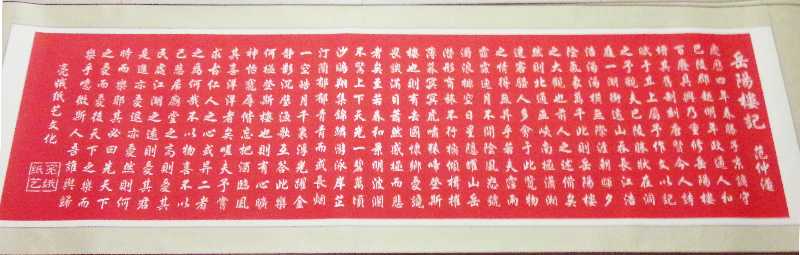 岳陽樓記 范仲淹
慶曆四年春滕子京謫守
巴陵郡越明年政通人和
百廢具興乃重修岳陽樓
增其舊制刻唐賢今人詩
賦于其上屬予作文以記
之予觀夫巴陵勝狀在洞
庭一湖銜遠山吞長江浩
浩湯湯橫無際涯朝暉夕
陰氣象萬千此則岳陽樓
之大觀也前人之述備矣
然則北通巫峽南極瀟湘
遷客騷人多會于此覽物
之情得無異乎若夫霪雨
霏霏連月不開陰風怒號
濁浪排空日星隱耀山岳
潛形商旅不行檣傾楫摧
薄暮冥冥虎嘯猿啼登斯
樓也則有去國懷鄉憂讒
畏譏滿目蕭然感極而悲
者矣至若春和景明波瀾
不驚上下天光一碧萬頃
沙鷗翔集錦鱗游泳岸芷
汀蘭郁郁青青而或長烟
一空皓月千里浮光躍金
靜影沉璧漁歌互答此樂
何極登斯樓也則有心曠
神怡寵辱偕忘把酒臨風
其喜洋洋者矣嗟夫予嘗
求古仁人之心或異二者
之為何哉不以物喜不以
己悲居廟堂之高則憂其
民處江湖之遠則憂其君
是進亦憂退亦憂然則何
時而樂耶其必曰先天下
之憂而憂後天下之樂而
樂乎噫微斯人吾誰與歸
亮娥纸艺文化
亮娥
纸艺